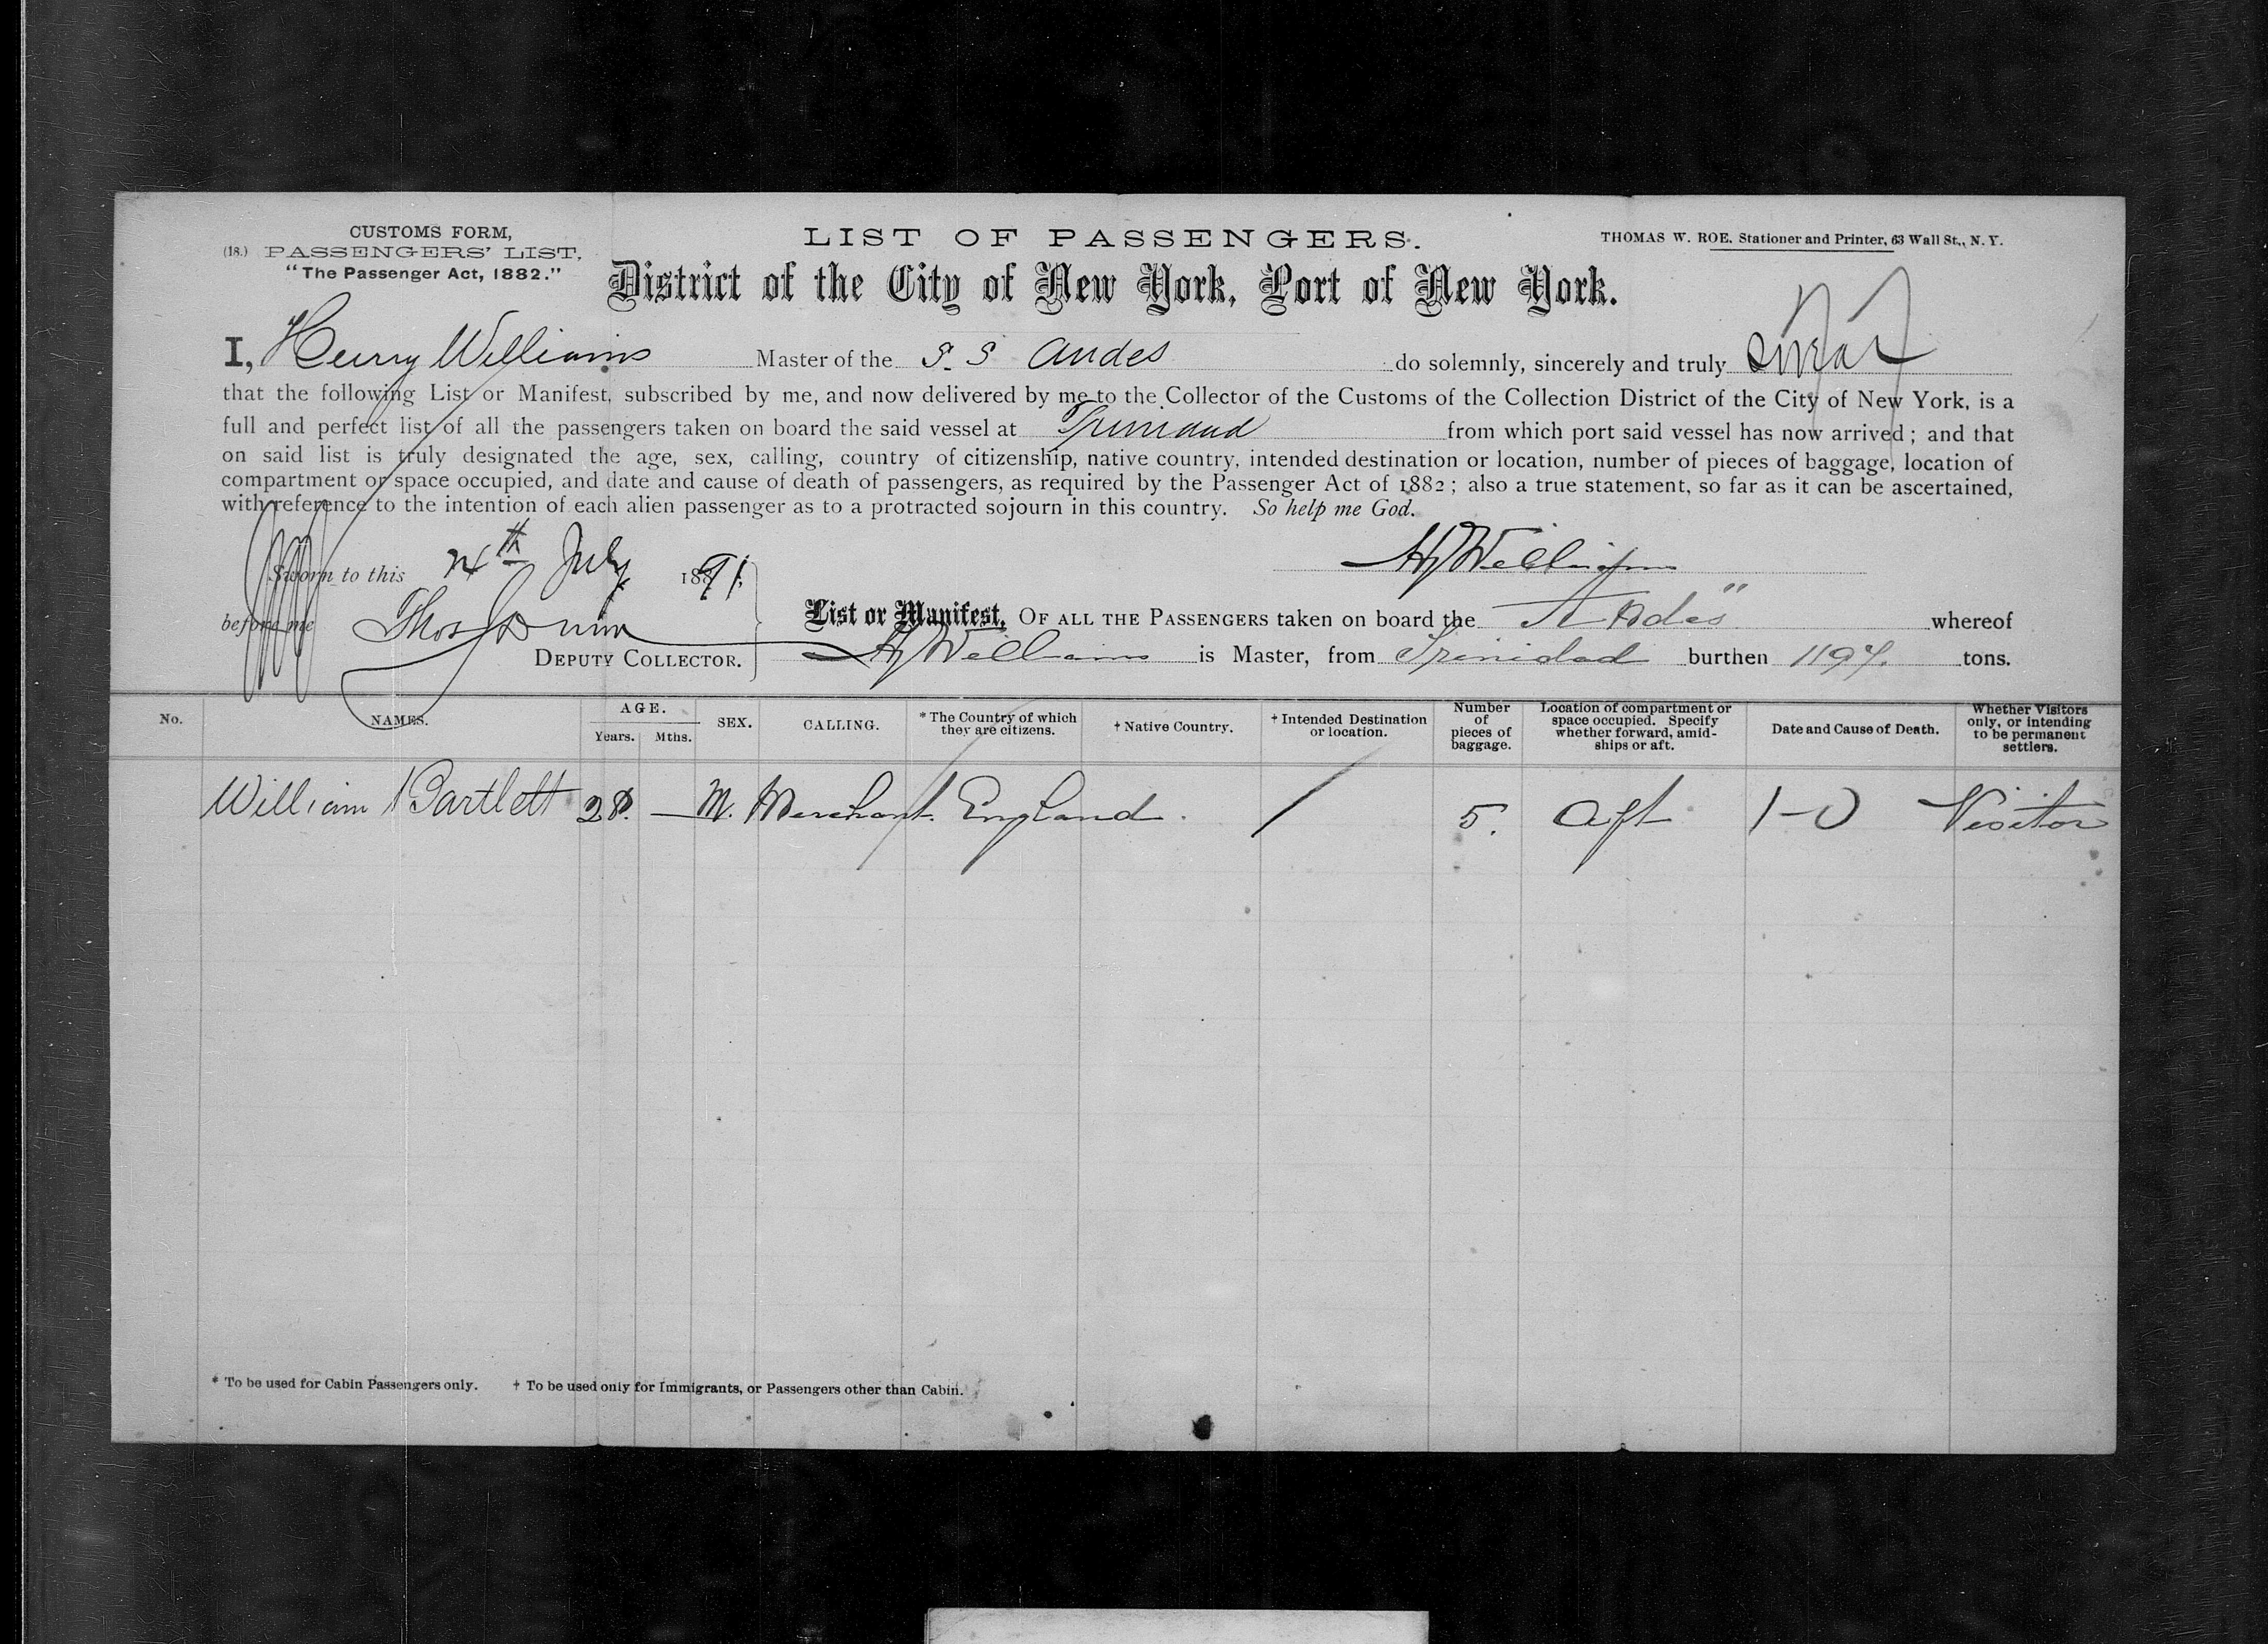 CUSTOMS FORM,
(18.) PASSENGERS' LIST,
"The Passenger Act, 1882."
LIST OF PASSENGERS.
THOMAS W. ROE. Stationer and Printer, 63 Wall St., N. Y.
District of the City of New York, Port of New York.
I, Henry Williams Master of the S. S Andes do solemnly, sincerely and truly swear
that the following List or Manifest, subscribed by me, and now delivered by me to the Collector of the Customs of the Collection District of the City of New York, is a
full and perfect list of all the passengers taken on board the said vessel at Trinidad from which port said vessel has now arrived; and that
on said list is truly designated the age, sex, calling, country of citizenship, native country, intended destination or location, number of pieces of baggage, location of
compartment or space occupied, and date and cause of death of passengers, as required by the Passenger Act of 1882; also a true statement, so far as it can be ascertained,
with reference to the intention of each alien passenger as to a protracted sojourn in this country. So help me God.
Sworn to this July 1891,
Hy Williams
before me Thos
DEPUTY COLLECTOR.
List or Manifest, OF ALL THE PASSENGERS taken on board the Andes" whereof
Hy Williams is Master, from Trinidad burthen 1194. tons.
No. NAMES. AGE. Years. Mths. SEX. CALLING. * The Country of which they are citizens. † Native Country. † Intended Destination or location. Number of pieces of baggage. Location of compartment or space occupied. Specify whether forward, amid-ships or aft. Date and Cause of Death. Whether Visitors only, or intending to be permanent settlers.
William Bartlett 28. — M. Merchant. England. / 5. Aft 1-0 Visitor
* To be used for Cabin Passengers only. † To be used only for Immigrants, or Passengers other than Cabin.